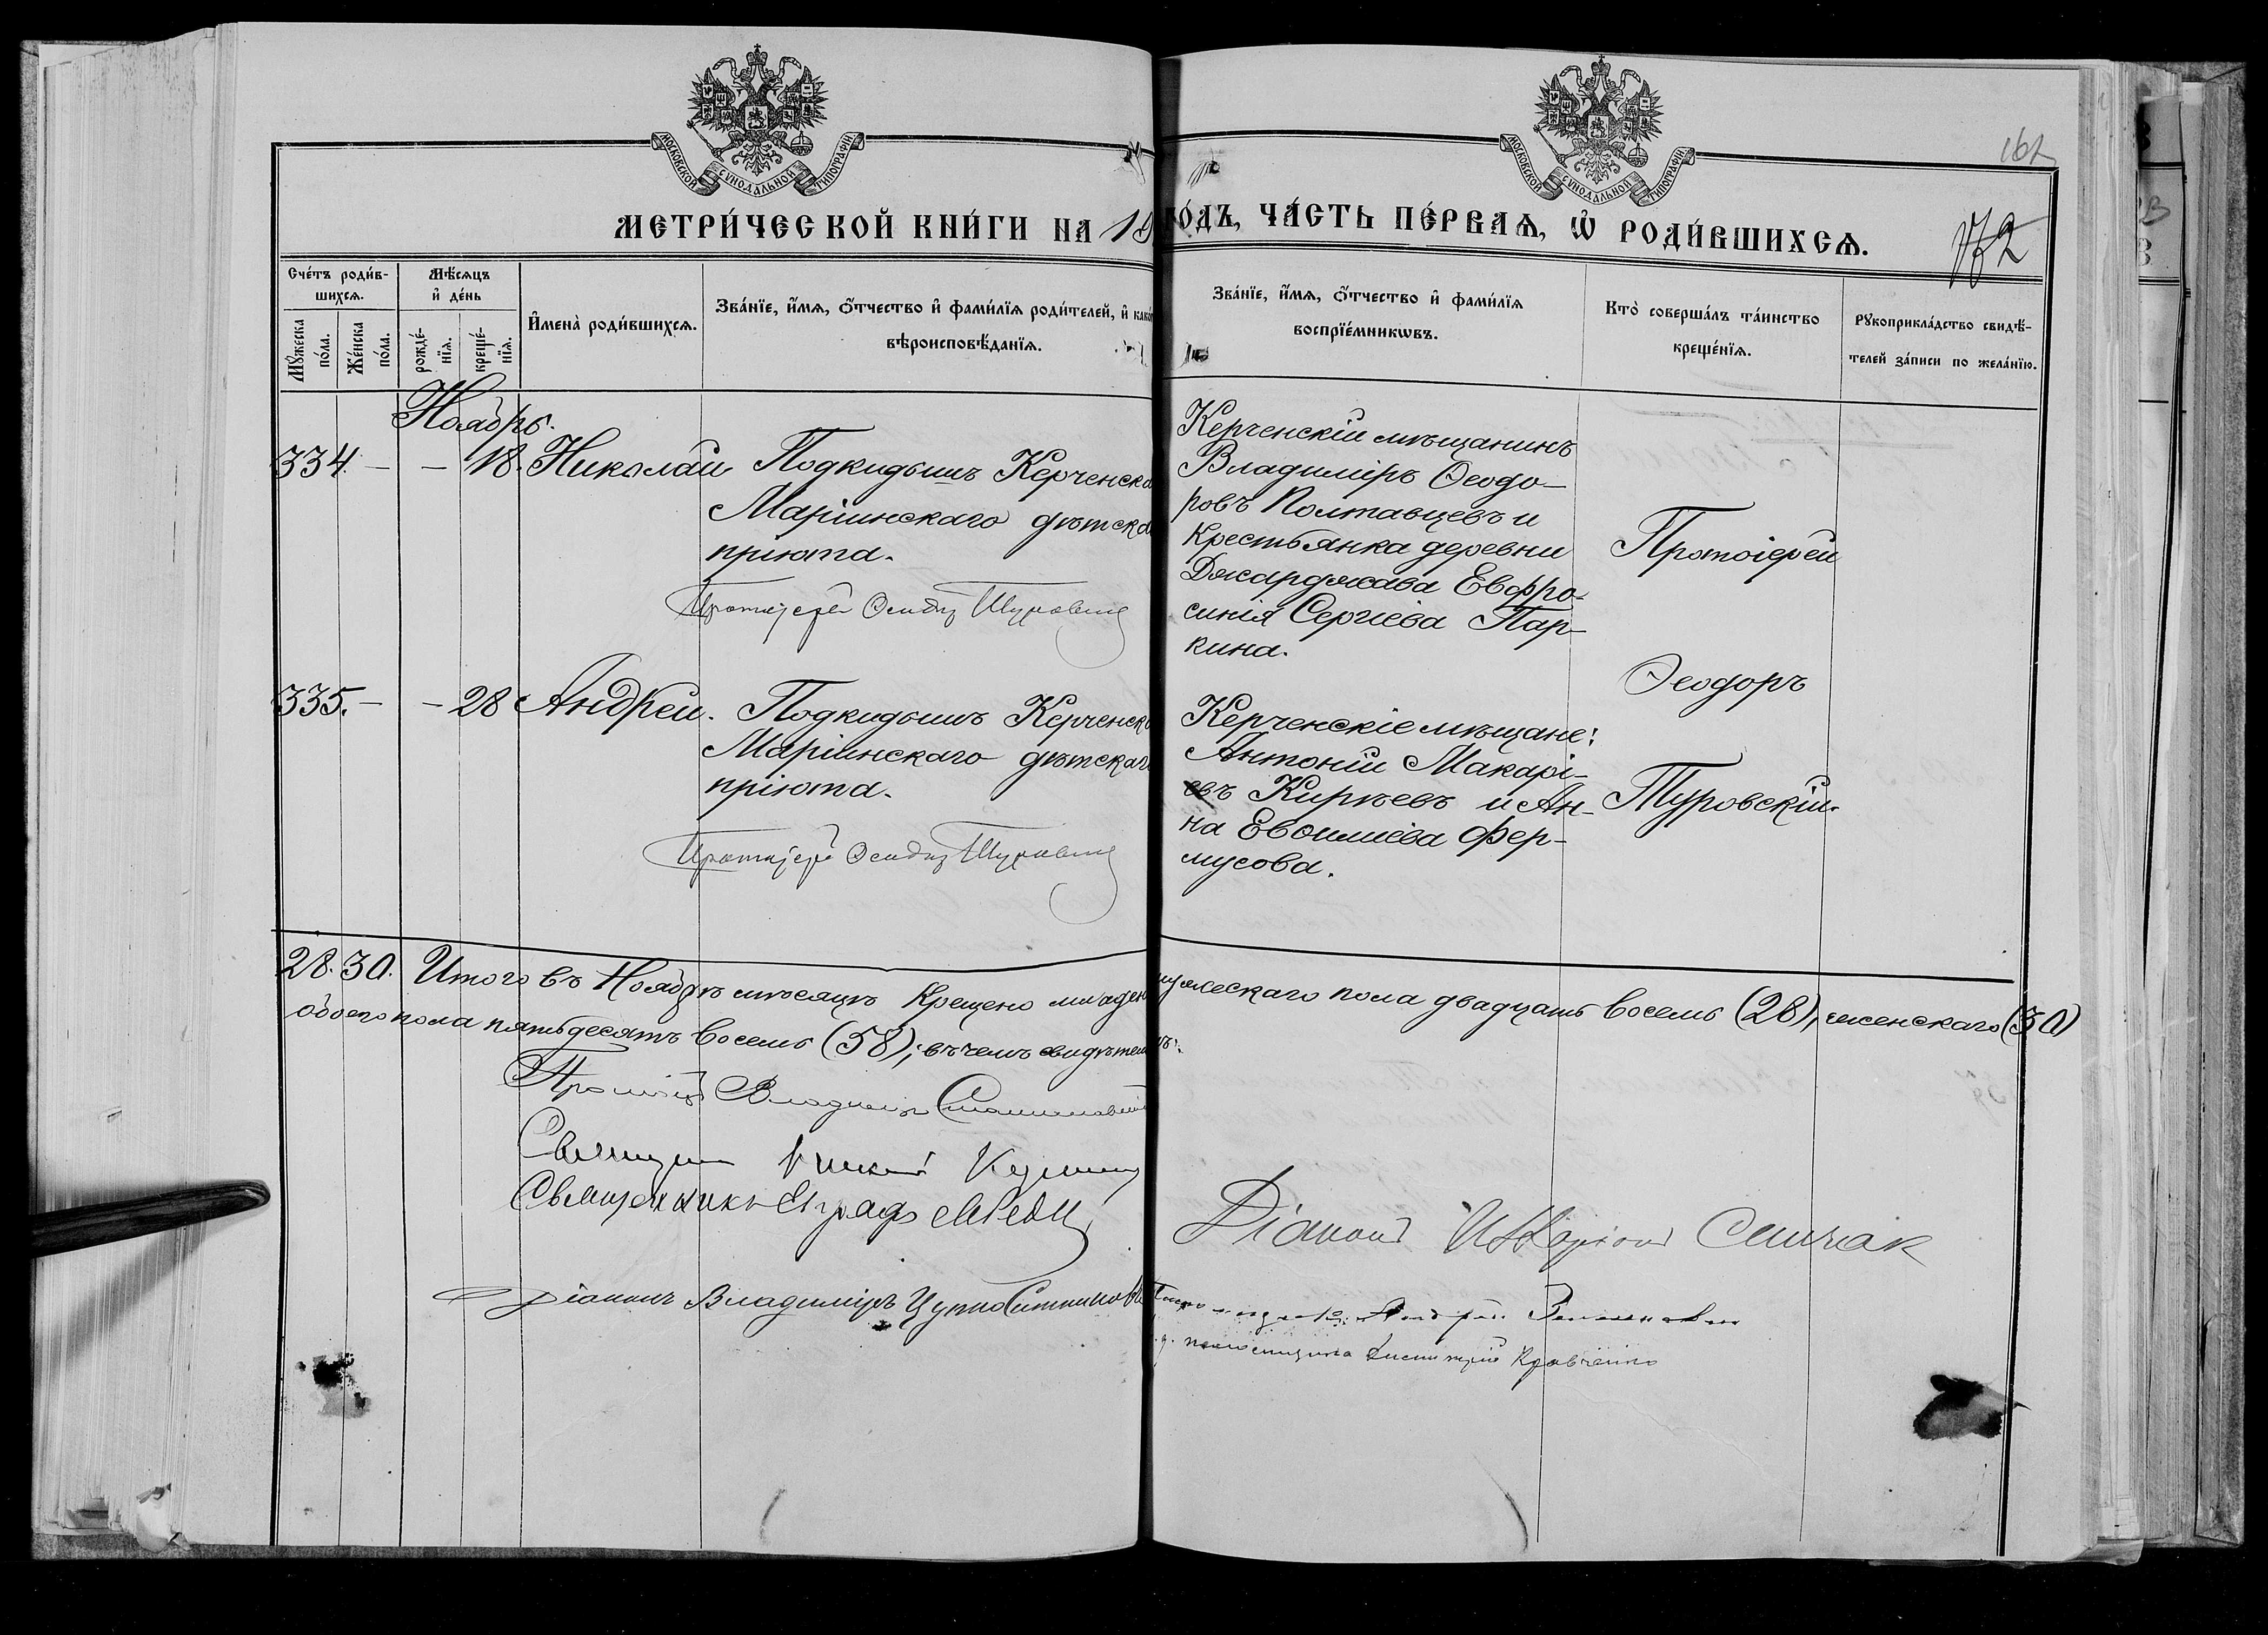 МОСКОВСКОЙ СѴНОДАЛЬНОЙ ТИПОГРАФІИ
МОСКОВСКОЙ СѴНОДАЛЬНОЙ ТИПОГРАФІИ
162
МЕТРИ́ЧЕСКОЙ КНИ́ГИ НА 19
ГО́ДЪ, ЧА́СТЬ ПЕ́РВАѦ, Ѡ҆ РОДИ́ВШИХСѦ.
172
Сче́тъ роди́в-
шихсѧ.
Мѣ́сѧцъ
и҆ де́нь
Мꙋ́жеска
по́ла.
Же́нска
по́ла.
рожде́-
нїѧ.
креще́-
нїѧ.
И҆мена̀ роди́вшихсѧ.
Зва́нїе, и҆́мѧ, ѻ҆́тчество и҆ фами́лїѧ роди́телей, и҆ како́
вѣроисповѣ́данїѧ.
Зва́нїе, и҆́мѧ, ѻ҆́тчество и҆ фами́лїѧ
воспрїе́мникѡвъ.
Кто̀ соверша́лъ та́инство
креще́нїѧ.
Рꙋкоприкла́дство свидѣ́-
телей за́писи по жела́нїю.
Ноябрь.
334. – – 18. Николай Подкидышъ Керченска
Маріинскаго дѣтска
пріюта.
Протоіерей Ѳеодоръ Туровскій
Керченскій мѣщанинъ
Владиміръ Ѳеодо-
ровъ Полтавцевъ и
крестьянка деревни
Джарджава Евфро-
синія Сергіева Пар-
кина.
Протоіерей
Ѳеодоръ
Туровскій.
335. – – 28 Андрей. Подкидышъ Керченска
Маріинскаго дѣтскаго
пріюта.
Протоіерей Ѳеодоръ Туровскій
Керченскіе мѣщане:
Антоній Макарі-
евъ Кирѣевъ и Ан-
на Евѳиміева Фер-
мусова.
28. 30. Итого въ Ноябрѣ мѣсяцѣ крещено младен мужескаго пола двадцать восемь (28), женскаго (30)
обоего пола пятьдесятъ восемь (58); въ чемъ свидѣтел
Протоіерей Владиміръ
Священникъ
Священникъ
Діаконъ Иларіонъ
Діаконъ Владиміръ
Андрей
Димитрій Кравченко